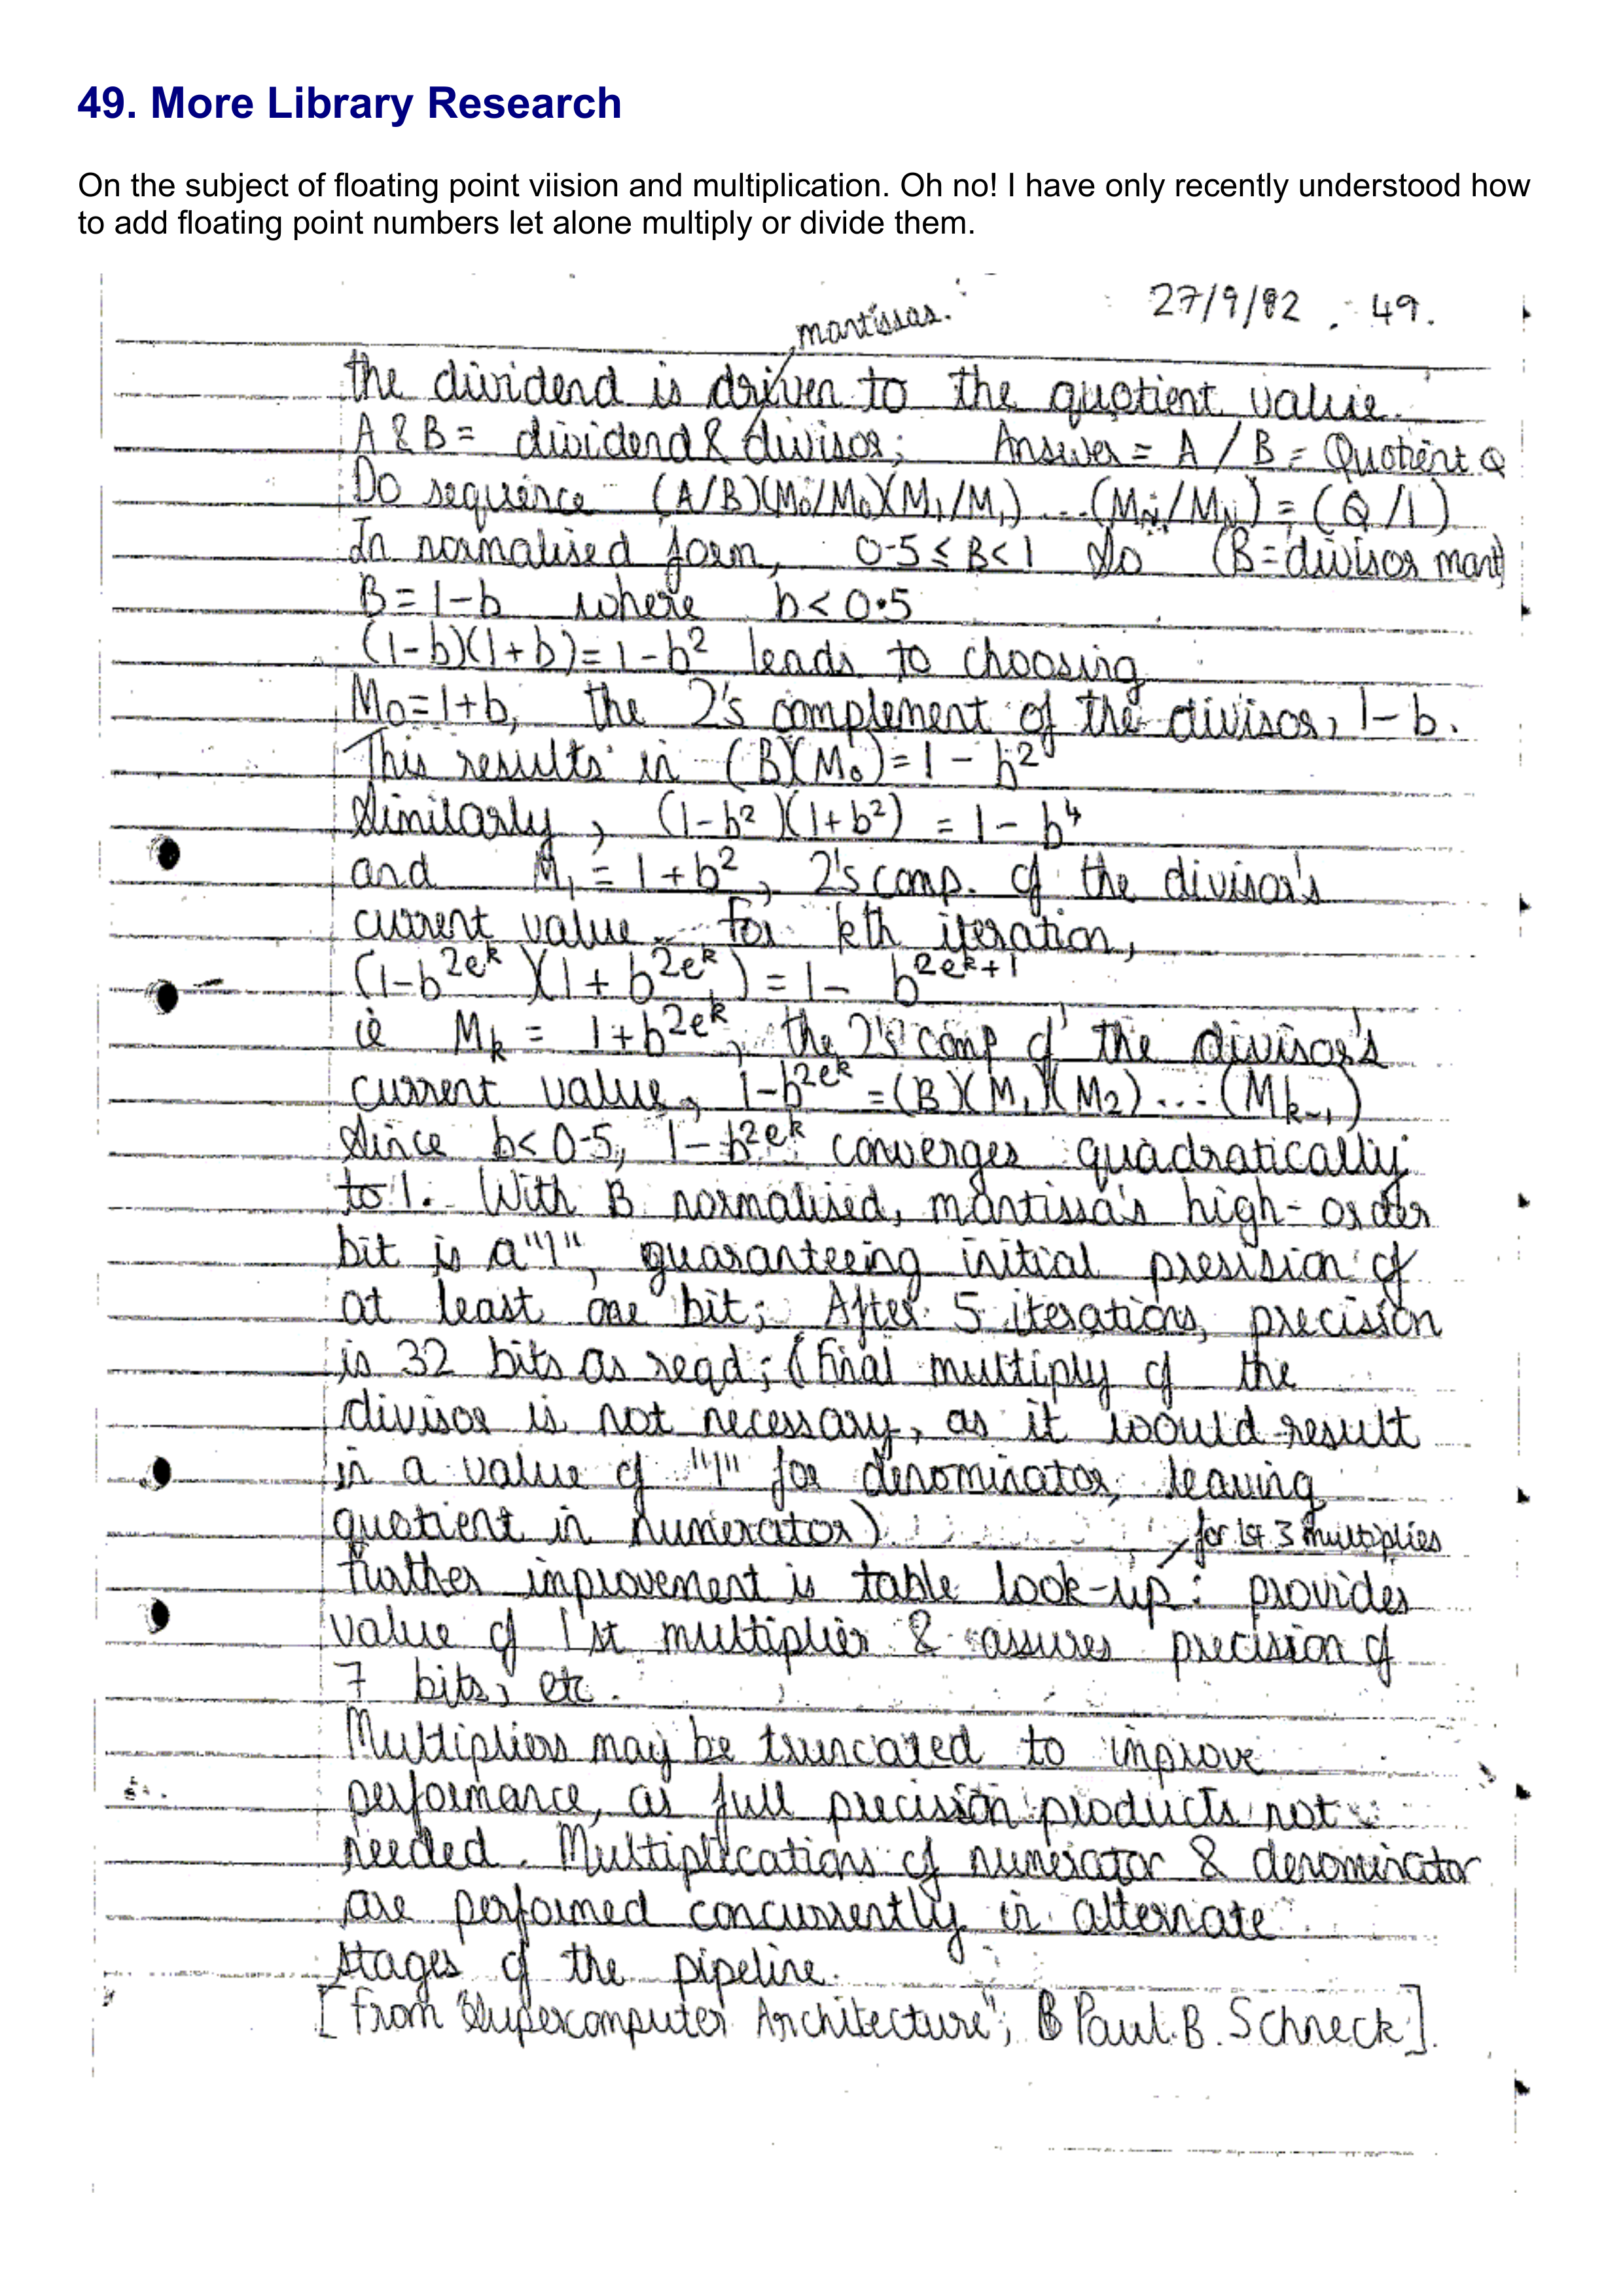 49. More Library Research
On the subject of floating point viision and multiplication. Oh no! I have only recently understood how
to add floating point numbers let alone multiply or divide them.
27/9/82 49.
mantissas.
the dividend is driven to the quotient value.
A & B = dividend & divisor; Answer = A / B = Quotient Q
Do sequence (A/B)(M₀/M₀)(M₁/M₁)...(Mɴ/Mɴ) = (Q/1)
In normalised form, 0.5 ≤ B < 1 So (B = divisor mant)
B = 1-b where b < 0.5
(1-b)(1+b) = 1-b² leads to choosing
M₀ = 1+b, the 2's complement of the divisor, 1-b.
This results in (B)(M₀) = 1 - b²
Similarly, (1-b²)(1+b²) = 1 - b⁴
and M₁ = 1+b², 2's comp. of the divisor's
current value. For kth iteration,
(1-b^2e^k)(1+b^2e^k) = 1- b^2e^k+1
ie Mk = 1+b^2e^k, the 2's comp of the divisor's
current value, 1-b^2e^k = (B)(M₁)(M₂)...(Mk-₁)
Since b < 0.5, 1-b^2e^k converges quadratically
to 1. With B normalised, mantissa's high-order
bit is a "1", guaranteeing initial presision of
at least one bit; After 5 iterations, precision
is 32 bits as reqd; (final multiply of the
divisor is not necessary, as it would result
in a value of "1" for denominator, leaving
quotient in numerator).
for 1st 3 multiplies
Further improvement is table look-up: provides
value of 1st multiplier & assures precision of
7 bits, etc.
Multipliers may be truncated to improve
performance, as full precision products not
needed. Multiplications of numerator & denominator
are performed concurrently in alternate
stages of the pipeline.
[From "Supercomputer Architecture"; Paul. B. Schneck].